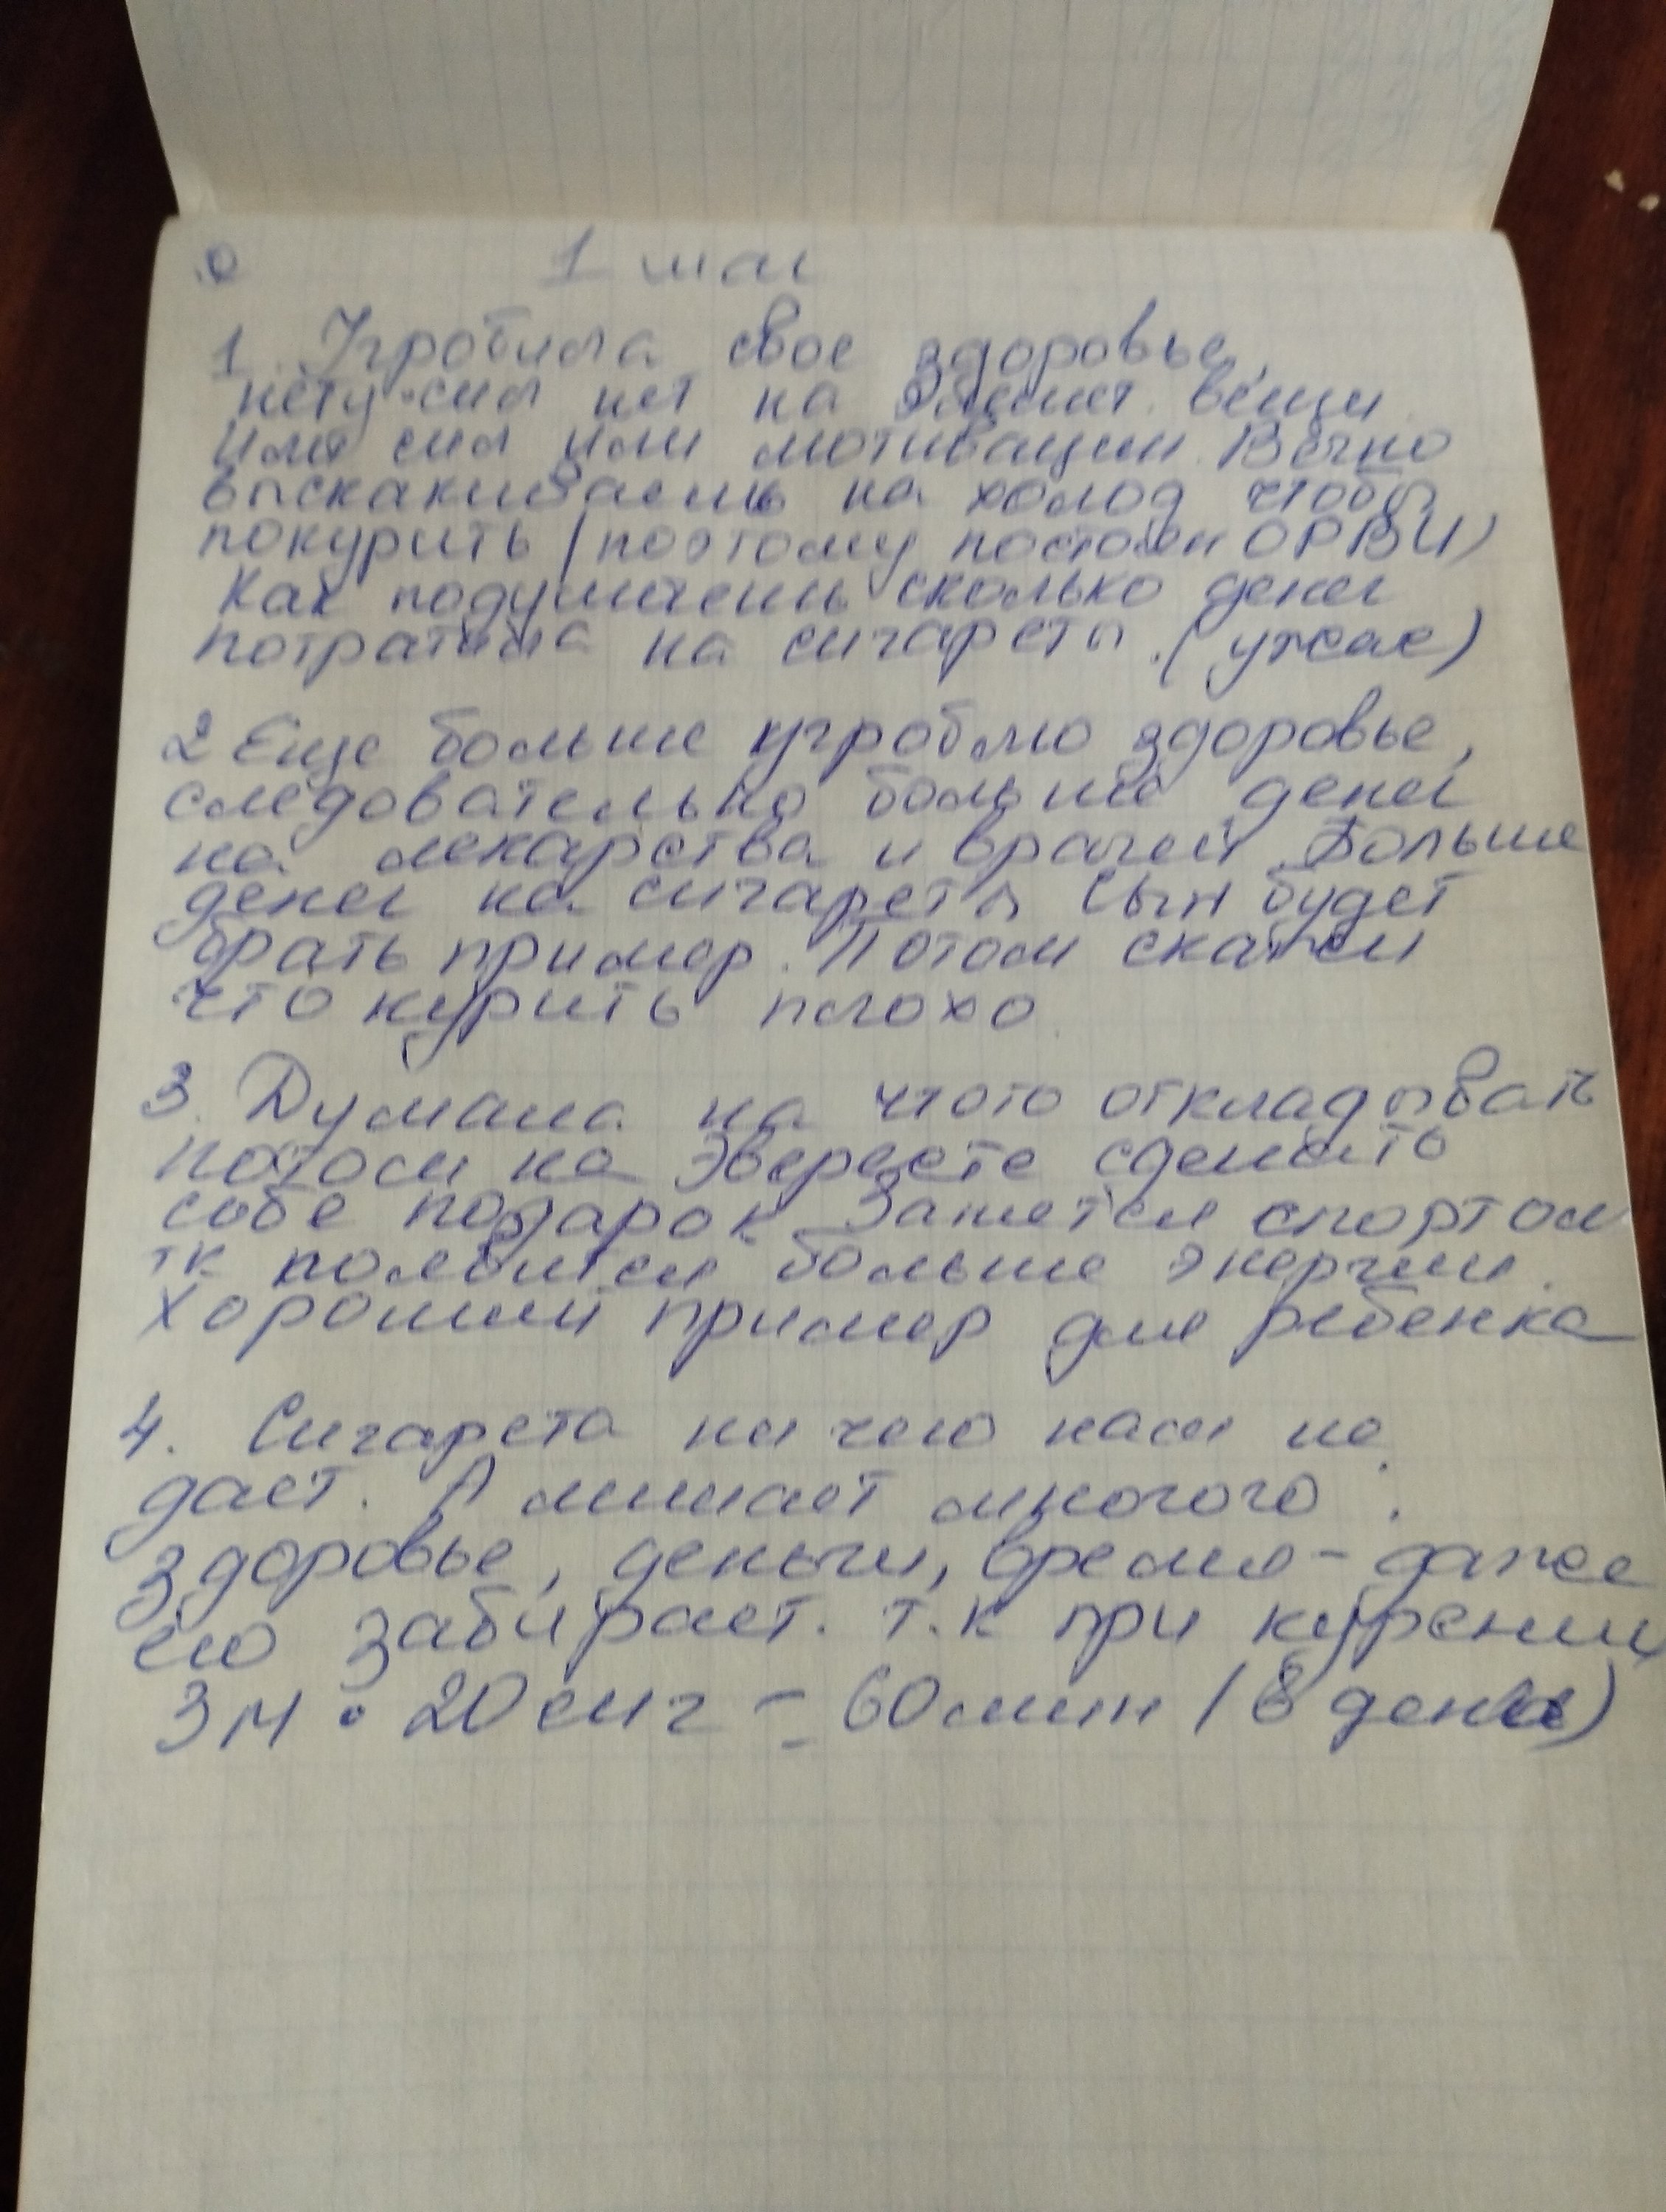 1 шаг
1. Угробила свое здоровье,
нету сил нет на вещи
или сил или мотивации. Вечно
выскакиваешь на холод чтобы
покурить (поэтому постоян ОРВИ)
Как подумаешь сколько денег
потратила на сигареты. (ужас)
2 Еще больше угроблю здоровье,
следовательно больше денег
на лекарства и врачей. Больше
денег на сигареты. Сын будет
брать пример. Потом скажи
что курить плохо
3. Думала на чтото откладывать
потом на Эвересте сделать
себе подарок. Занятся спортом
тк появится больше энергии.
Хороший пример для ребенка
4. Сигарета ни чего нам не
дает. А лишает многого.
здоровье, деньги, время - даже
его забирает. т.к при курении
3м • 20 сиг = 60 мин (в день)